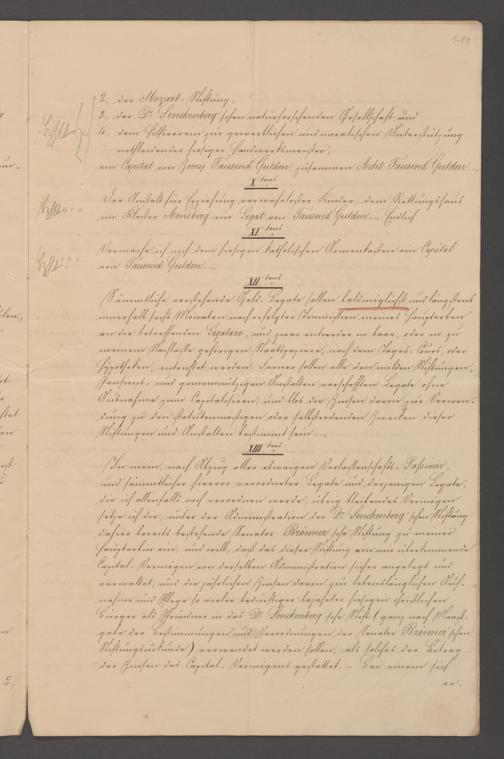 119
2. der Mozart-Stiftung,
3. der Dr. Senckenberg'schen naturforschenden Gesellschaft und
4. dem Hilfsverein zur gewerblichen und moralischen Unterstützung
nothleidender hiesiger Handwerksmeister,
ein Capital von Zwey Tausend Gulden, zusammen Acht Tausend Gulden.
X tens
Der Anstalt für Erziehung verwahrloster Kinder, dem Rettungshaus
im Kloster Arnsburg ein Legat von Tausend Gulden. – Endlich
XI tens
Vermache ich noch dem hiesigen katholischen Armenkasten ein Capital
von Tausend Gulden.
XII tens
Sämmtliche vorstehende Geld-Legate sollen baldmöglichst und längstens
innerhalb sechs Monaten nach erfolgter Immission meines Haupterben
an die betreffenden Legatare, und zwar entweder in baar, oder in zu
meinem Nachlasse gehörigen Staatspapiere, nach dem Tages-Cours, oder
Hypotheken, entrichtet werden. Ferner sollen alle den milden Stiftungen,
Pensions- und gemeinnützigen Anstalten verschafften Legate ohne
Ausnahme zum Capitalisiren, und blos die Zinsen davon zur Verwen-
dung zu den statutenmäsigen oder selbstredenden Zwecken dieser
Stiftungen und Anstalten bestimmt sein.
XIII tens
In mein, nach Abzug aller etwaigen Verlassenschafts-Passiven,
und sämmtlicher hiervor verordneter Legate und derjenigen Legate,
die ich allenfalls noch verordnen werde, übrig bleibendes Vermögen
setze ich die, unter der Administration der Dr. Senckenberg'schen Stiftung
dahier bereits bestehende Senator Brönner'sche Stiftung zu meiner
Haupterbin ein, und will, daß das dieser Stiftung von mir überkommende
Capital-Vermögen von derselben Administration sicher angelegt und
verwaltet, und die jährlichen Zinsen davon zur lebenslänglichen Auf-
nahme und Pflege so vieler bedürftiger bejahrter hiesiger christlichen
Bürger als Pfründner in das Dr. Senckenberg'sche Stift (ganz nach Maas-
gabe der Bestimmungen und Verordnungen der Senator Brönner'schen
Stiftungsurkunde) verwendet werden sollen, als solches der Betrag
der Zinsen des Capital-Vermögens gestattet. – Bei einem sich
er-